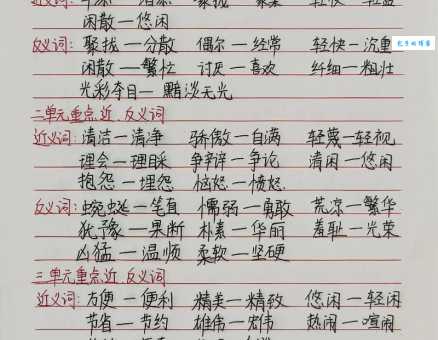 闲散—悠闲
反义词: 聚拢—分散 偶尔—经常 轻快—沉重
闲散—繁忙 讨厌—喜欢 纤细—粗壮
光彩夺目—黯淡无光
二单元重点近、反义词
近义词: 清洁—清净 骄傲—自满 轻蔑—轻视
理会—理睬 争辩—争论 清闲—悠闲
抱怨—埋怨 恼怒—愤怒
反义词: 蜿蜒—笔直 懦弱—勇敢 荒凉—繁华
犹豫—果断 朴素—华丽 羞耻—光荣
凶猛—温顺 柔软—坚硬
三单元重点近、反义词
近义词: 方便—便利 精美—精致 悠闲—轻闲
节省—节约 雄伟—宏伟 热闹—喧闹